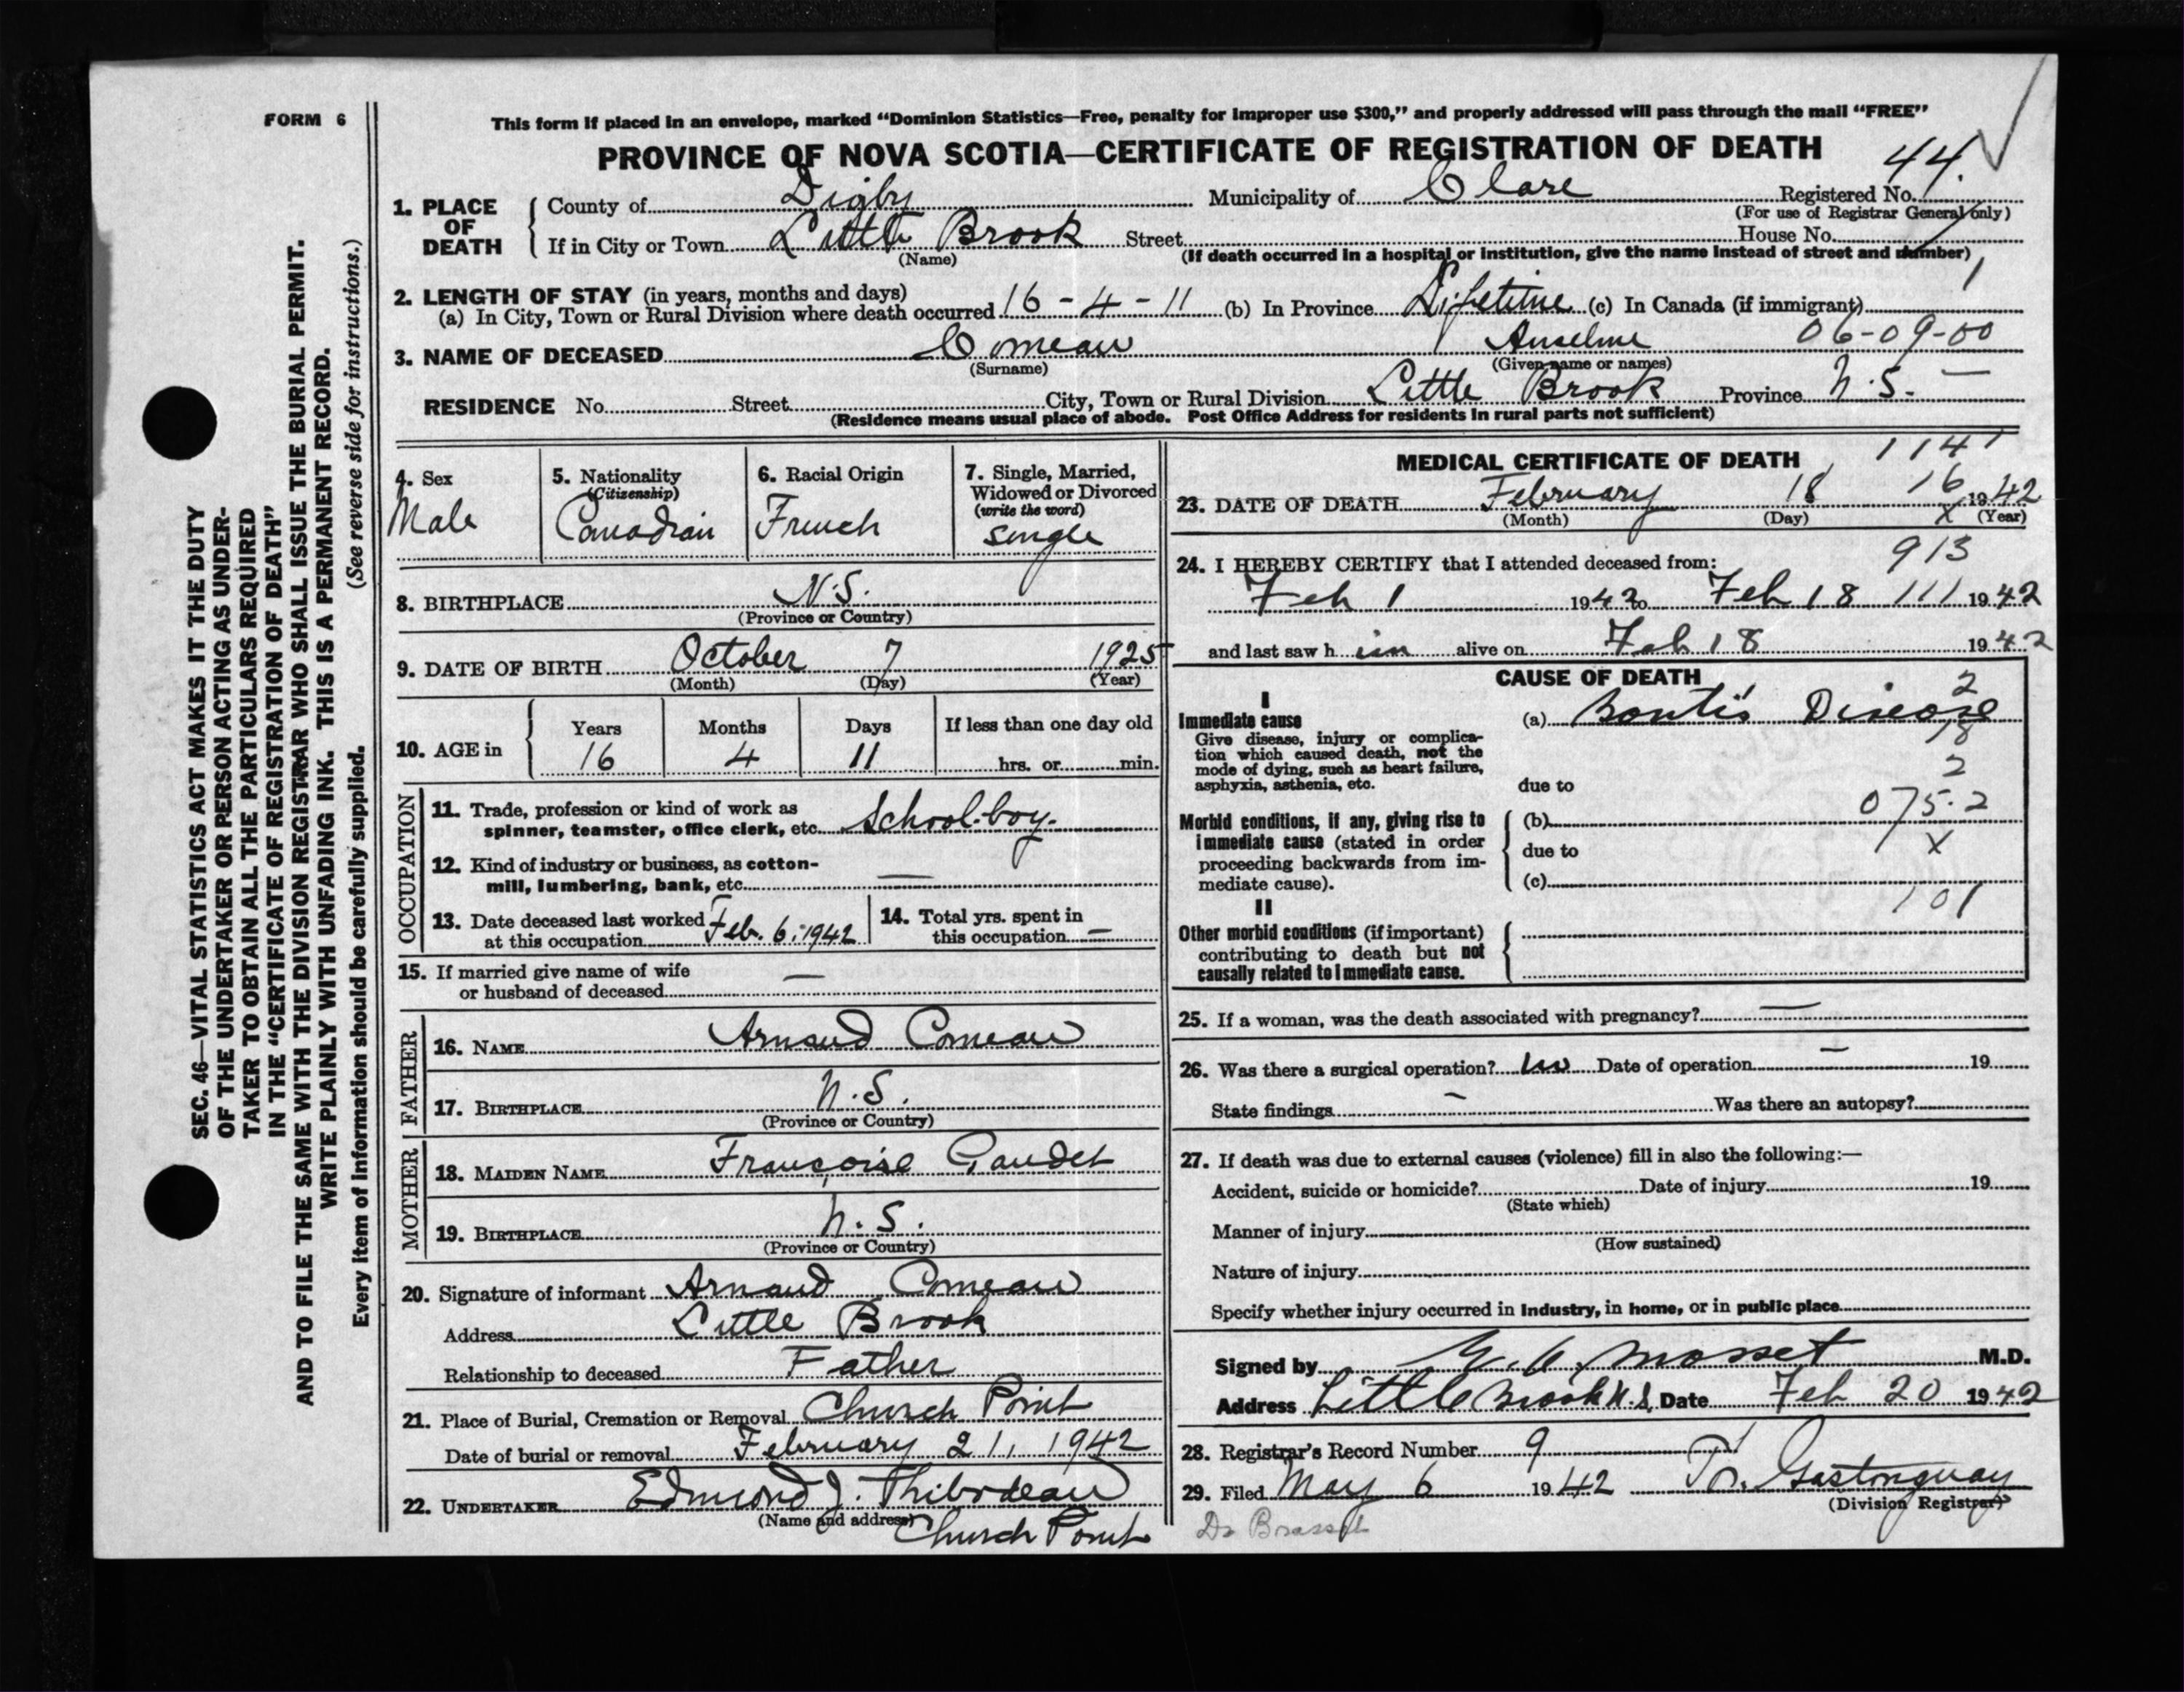 FORM 6
This form if placed in an envelope, marked "Dominion Statistics—Free, penalty for improper use $300," and properly addressed will pass through the mail "FREE"
PROVINCE OF NOVA SCOTIA—CERTIFICATE OF REGISTRATION OF DEATH
44.
1. PLACE OF DEATH
County of Digby Municipality of Clare Registered No.
(For use of Registrar General only)
If in City or Town Little Brook Street House No.
(Name) (If death occurred in a hospital or institution, give the name instead of street and number)
2. LENGTH OF STAY (in years, months and days)
(a) In City, Town or Rural Division where death occurred 16 - 4 - 11 (b) In Province Lifetime (c) In Canada (if immigrant)
3. NAME OF DECEASED Comeau Anselme 06-09-00
(Surname) (Given name or names)
RESIDENCE No. Street City, Town or Rural Division Little Brook Province N.S. —
(Residence means usual place of abode. Post Office Address for residents in rural parts not sufficient)
4. Sex
Male
5. Nationality
(Citizenship)
Canadian
6. Racial Origin
French
7. Single, Married,
Widowed or Divorced
(write the word)
Single
8. BIRTHPLACE N.S.
(Province or Country)
9. DATE OF BIRTH October 7 1925
(Month) (Day) (Year)
10. AGE in
Years Months Days If less than one day old
16 4 11 hrs. or min.
OCCUPATION
11. Trade, profession or kind of work as
spinner, teamster, office clerk, etc. School-boy.
12. Kind of industry or business, as cotton-
mill, lumbering, bank, etc. —
13. Date deceased last worked
at this occupation Feb. 6, 1942
14. Total yrs. spent in
this occupation —
15. If married give name of wife
or husband of deceased —
FATHER
16. NAME Arnaud Comeau
17. BIRTHPLACE N.S.
(Province or Country)
MOTHER
18. MAIDEN NAME Françoise Gaudet
19. BIRTHPLACE N.S.
(Province or Country)
20. Signature of informant Arnaud Comeau
Address Little Brook
Relationship to deceased Father
21. Place of Burial, Cremation or Removal Church Point
Date of burial or removal February 21, 1942
22. UNDERTAKER Edmond J. Thibodeau
(Name and address) Church Point
MEDICAL CERTIFICATE OF DEATH 1141
16
23. DATE OF DEATH February 18 1942
(Month) (Day) X (Year)
24. I HEREBY CERTIFY that I attended deceased from: 913
Feb 1 1942 to Feb 18 111 1942
and last saw h im alive on Feb 18 1942
CAUSE OF DEATH
2
I
Immediate cause
Give disease, injury or complica-
tion which caused death, not the
mode of dying, such as heart failure,
asphyxia, asthenia, etc.
(a) Disease
18
2
due to
Morbid conditions, if any, giving rise to
immediate cause (stated in order
proceeding backwards from im-
mediate cause).
(b) 075.2
due to X
(c)
101
II
Other morbid conditions (if important)
contributing to death but not
causally related to immediate cause.
25. If a woman, was the death associated with pregnancy? —
26. Was there a surgical operation? no Date of operation — 19
State findings - Was there an autopsy?
27. If death was due to external causes (violence) fill in also the following:—
Accident, suicide or homicide? Date of injury 19
(State which)
Manner of injury
(How sustained)
Nature of injury
Specify whether injury occurred in industry, in home, or in public place
Signed by M.D.
Address Little Brook N.S. Date Feb 20 1942
28. Registrar's Record Number 9
29. Filed May 6 1942 Gastonguay
(Division Registrar)
Dr
SEC. 46—VITAL STATISTICS ACT MAKES IT THE DUTY
OF THE UNDERTAKER OR PERSON ACTING AS UNDER-
TAKER TO OBTAIN ALL THE PARTICULARS REQUIRED
IN THE "CERTIFICATE OF REGISTRATION OF DEATH"
AND TO FILE THE SAME WITH THE DIVISION REGISTRAR WHO SHALL ISSUE THE BURIAL PERMIT.
WRITE PLAINLY WITH UNFADING INK. THIS IS A PERMANENT RECORD.
Every item of information should be carefully supplied. (See reverse side for instructions.)